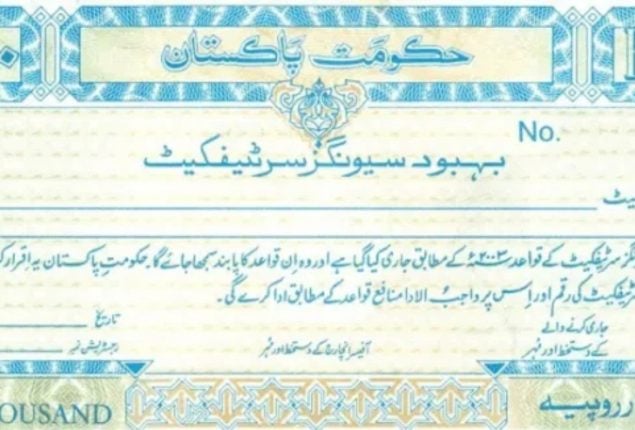 حکومت پاکستان
No.
بہبود سیونگز سرٹیفکیٹ
سرٹیفکیٹ کے قواعد ۲۰۰۳ء کے مطابق جاری کیا گیا ہے اور وہ ان قواعد کا پابند سمجھا جائے گا۔ حکومتِ پاکستان یہ اقرار
کی رقم اور اِس پر واجبُ الادا منافع قواعد کے مطابق ادا کرے گی۔
جاری کرنے والے
تاریخ
کے دستخط اور مُہر
آفیسر انچارج کے دستخط اور مُہر
رجسٹریشن نمبر
روپیہ
OUSAND